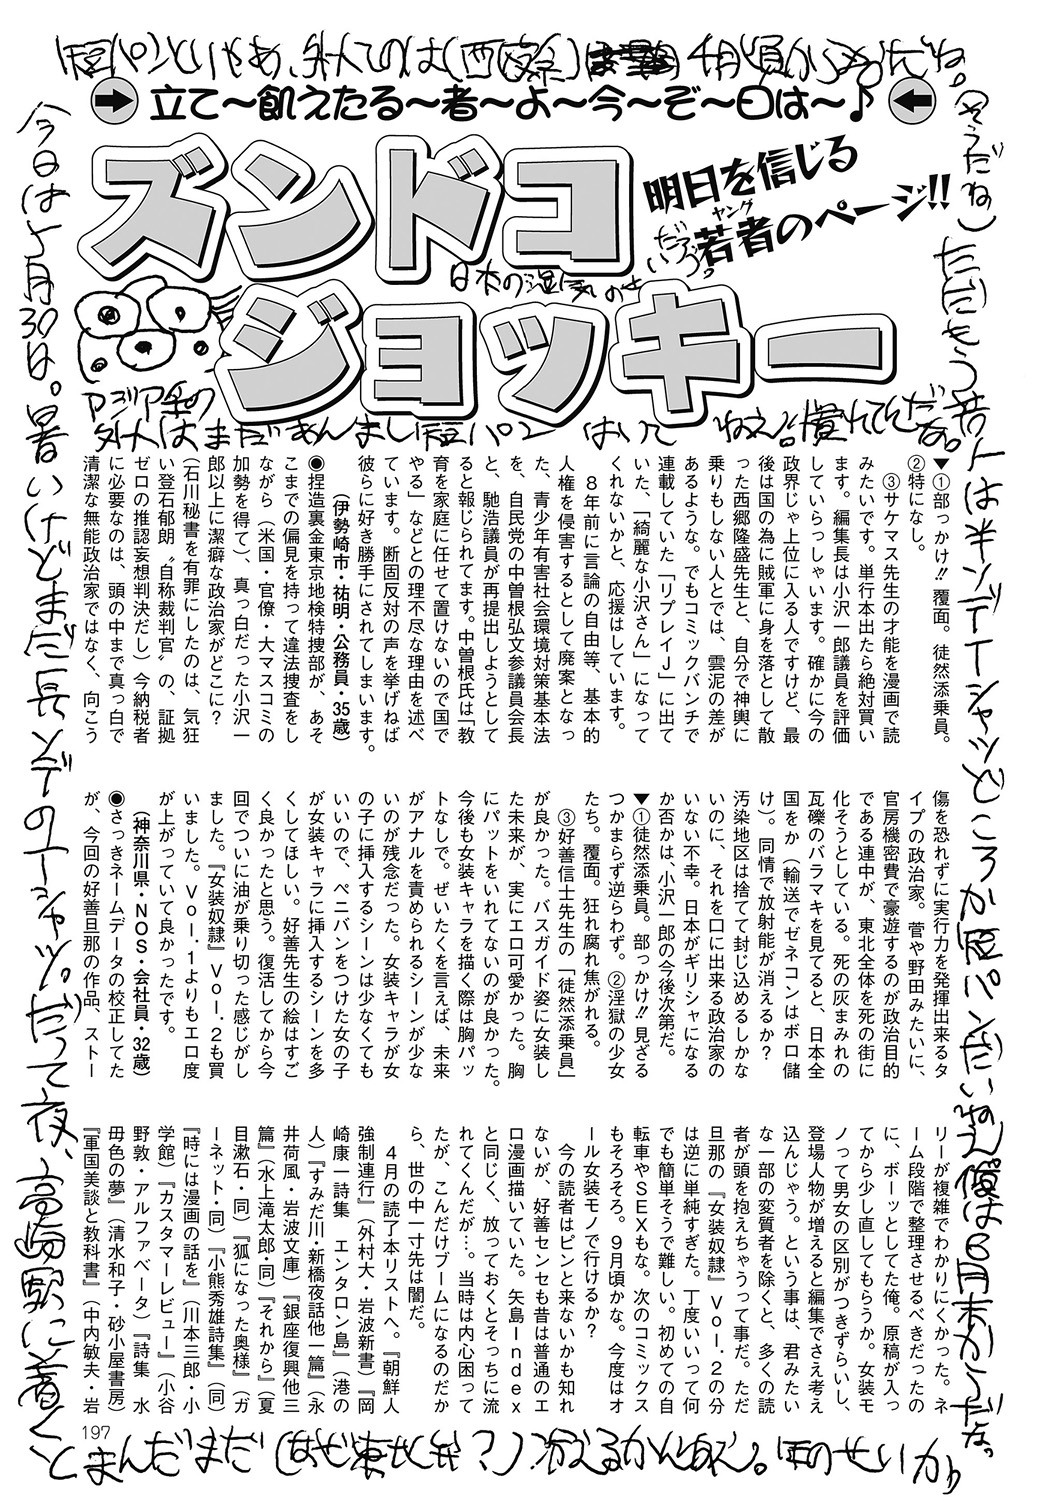 短パンといやあ、外人てのは(西欧系) 4月頃からめだね。
立て〜飢えたる〜者〜よ〜今〜ぞ〜日は〜♪
ズンドコ
ジョッキー
明日を信じる
若者のページ!!
ヤング
日本の湿気のせいだろう。
アジア系の
外人はまだあんまし短パン はいてねえ。慣れてんだな。
(そうだね)ただもう若人は半ソデTーシャツどころか短パンだいね。俺は8月末からだな。
今日は4月30日。暑いけどまだ長ソデのTーシャツ。だって夜、高崎駅に着くと
まんだまだ(なぜ東北弁?)冷えるかんね。
▼①部っかけ!!覆面。徒然添乗員。
②特になし。
③サケマス先生の才能を漫画で読
みたいです。単行本出たら絶対買い
ます。編集長は小沢一郎議員を評価
していらっしゃいます。確かに今の
政界じゃ上位に入る人ですけど、最
後は国の為に賊軍に身を落として散
った西郷隆盛先生と、自分で神輿に
乗りもしない人とでは、雲泥の差が
あるような。でもコミックバンチで
連載していた「リプレイJ」に出て
いた、「綺麗な小沢さん」になって
くれないかと、応援はしています。
8年前に言論の自由等、基本的
人権を侵害するとして廃案となっ
た、青少年有害社会環境対策基本法
を、自民党の中曽根弘文参議員会長
と、馳浩議員が再提出しようとして
ると報じられてます。中曽根氏は「教
育を家庭に任せて置けないので国で
やる」などとの理不尽な理由を述べ
ています。断固反対の声を挙げねば
彼らに好き勝手にされてしまいます。
(伊勢崎市・祐明・公務員・35歳)
◉捏造裏金東京地検特捜部が、あそ
こまでの偏見を持って違法捜査をし
ながら(米国・官僚・大マスコミの
加勢を得て)、真っ白だった小沢一
郎以上に潔癖な政治家がどこに?
(石川秘書を有罪にしたのは、気狂
い登石郁朗〝自称裁判官〟の、証拠
ゼロの推認妄想判決だし)今納税者
に必要なのは、頭の中まで真っ白で
清潔な無能政治家ではなく、向こう
傷を恐れずに実行力を発揮出来るタ
イプの政治家。菅や野田みたいに、
官房機密費で豪遊するのが政治目的
である連中が、東北全体を死の街に
化そうとしている。死の灰まみれの
瓦礫のバラマキを見てると、日本全
国をか(輸送でゼネコンはボロ儲
け)。同情で放射能が消えるか?
汚染地区は捨てて封じ込めるしかな
いのに、それを口に出来る政治家の
いない不幸。日本がギリシャになる
か否かは、小沢一郎の今後次第だ。
▼①徒然添乗員。部っかけ!!見ざる
つかまらず逆らわず。②淫獄の少女
たち。覆面。狂れ腐れ焦がれる。
③好善信士先生の「徒然添乗員」
が良かった。バスガイド姿に女装し
た未来が、実にエロ可愛かった。胸
にパットをいれてないのが良かった。
今後も女装キャラを描く際は胸パッ
トなしで。ぜいたくを言えば、未来
がアナルを責められるシーンが少な
いのが残念だった。女装キャラが女
の子に挿入するシーンは少なくても
いいので、ペニバンをつけた女の子
が女装キャラに挿入するシーンを多
くしてほしい。好善先生の絵はすご
く良かったと思う。復活してから今
回でついに油が乗り切った感じがし
ました。『女装奴隷』Vol.2も買
いました。Vol.1よりもエロ度
が上がっていて良かったです。
(神奈川県・NOS・会社員・32歳)
◉さっきネームデータの校正してた
が、今回の好善旦那の作品、ストー
リーが複雑でわかりにくかった。ネ
ーム段階で整理させるべきだったの
に、ボーッとしてた俺。原稿が入っ
てから少し直してもらうか。女装モ
ノって男女の区別がつきずらいし、
登場人物が増えると編集でさえ考え
込んじゃう。という事は、君みたい
な一部の変質者を除くと、多くの読
者が頭を抱えちゃうって事だ。ただ
旦那の『女装奴隷』Vol.2の分
は逆に単純すぎた。丁度いいって何
でも簡単そうで難しい。初めての自
転車やSEXもな。次のコミックス
もそろそろ。9月頃かな。今度はオ
ール女装モノで行けるか?
今の読者はピンと来ないかも知れ
ないが、好善センセも昔は普通のエ
ロ漫画描いていた。矢島Index
と同じく、放っておくとそっちに流
れてくんだが…。当時は内心困って
たが、こんだけブームになるのだか
ら、世の中一寸先は闇だ。
4月の読了本リストへ。『朝鮮人
強制連行』(外村大・岩波新書)『岡
崎康一詩集 エンタロン島』(港の
人)『すみだ川・新橋夜話他一篇』(永
井荷風・岩波文庫)『銀座復興他三
篇』(水上滝太郎・同)『それから』(夏
目漱石・同)『狐になった奥様』(ガ
ーネット・同)『小熊秀雄詩集』(同)
『時には漫画の話を』(川本三郎・小
学館)『カスタマーレビュー』(小谷
野敦・アルファベータ)『詩集 水
毋色の夢』(清水和子・砂小屋書房)
『軍国美談と教科書』(中内敏夫・岩
197